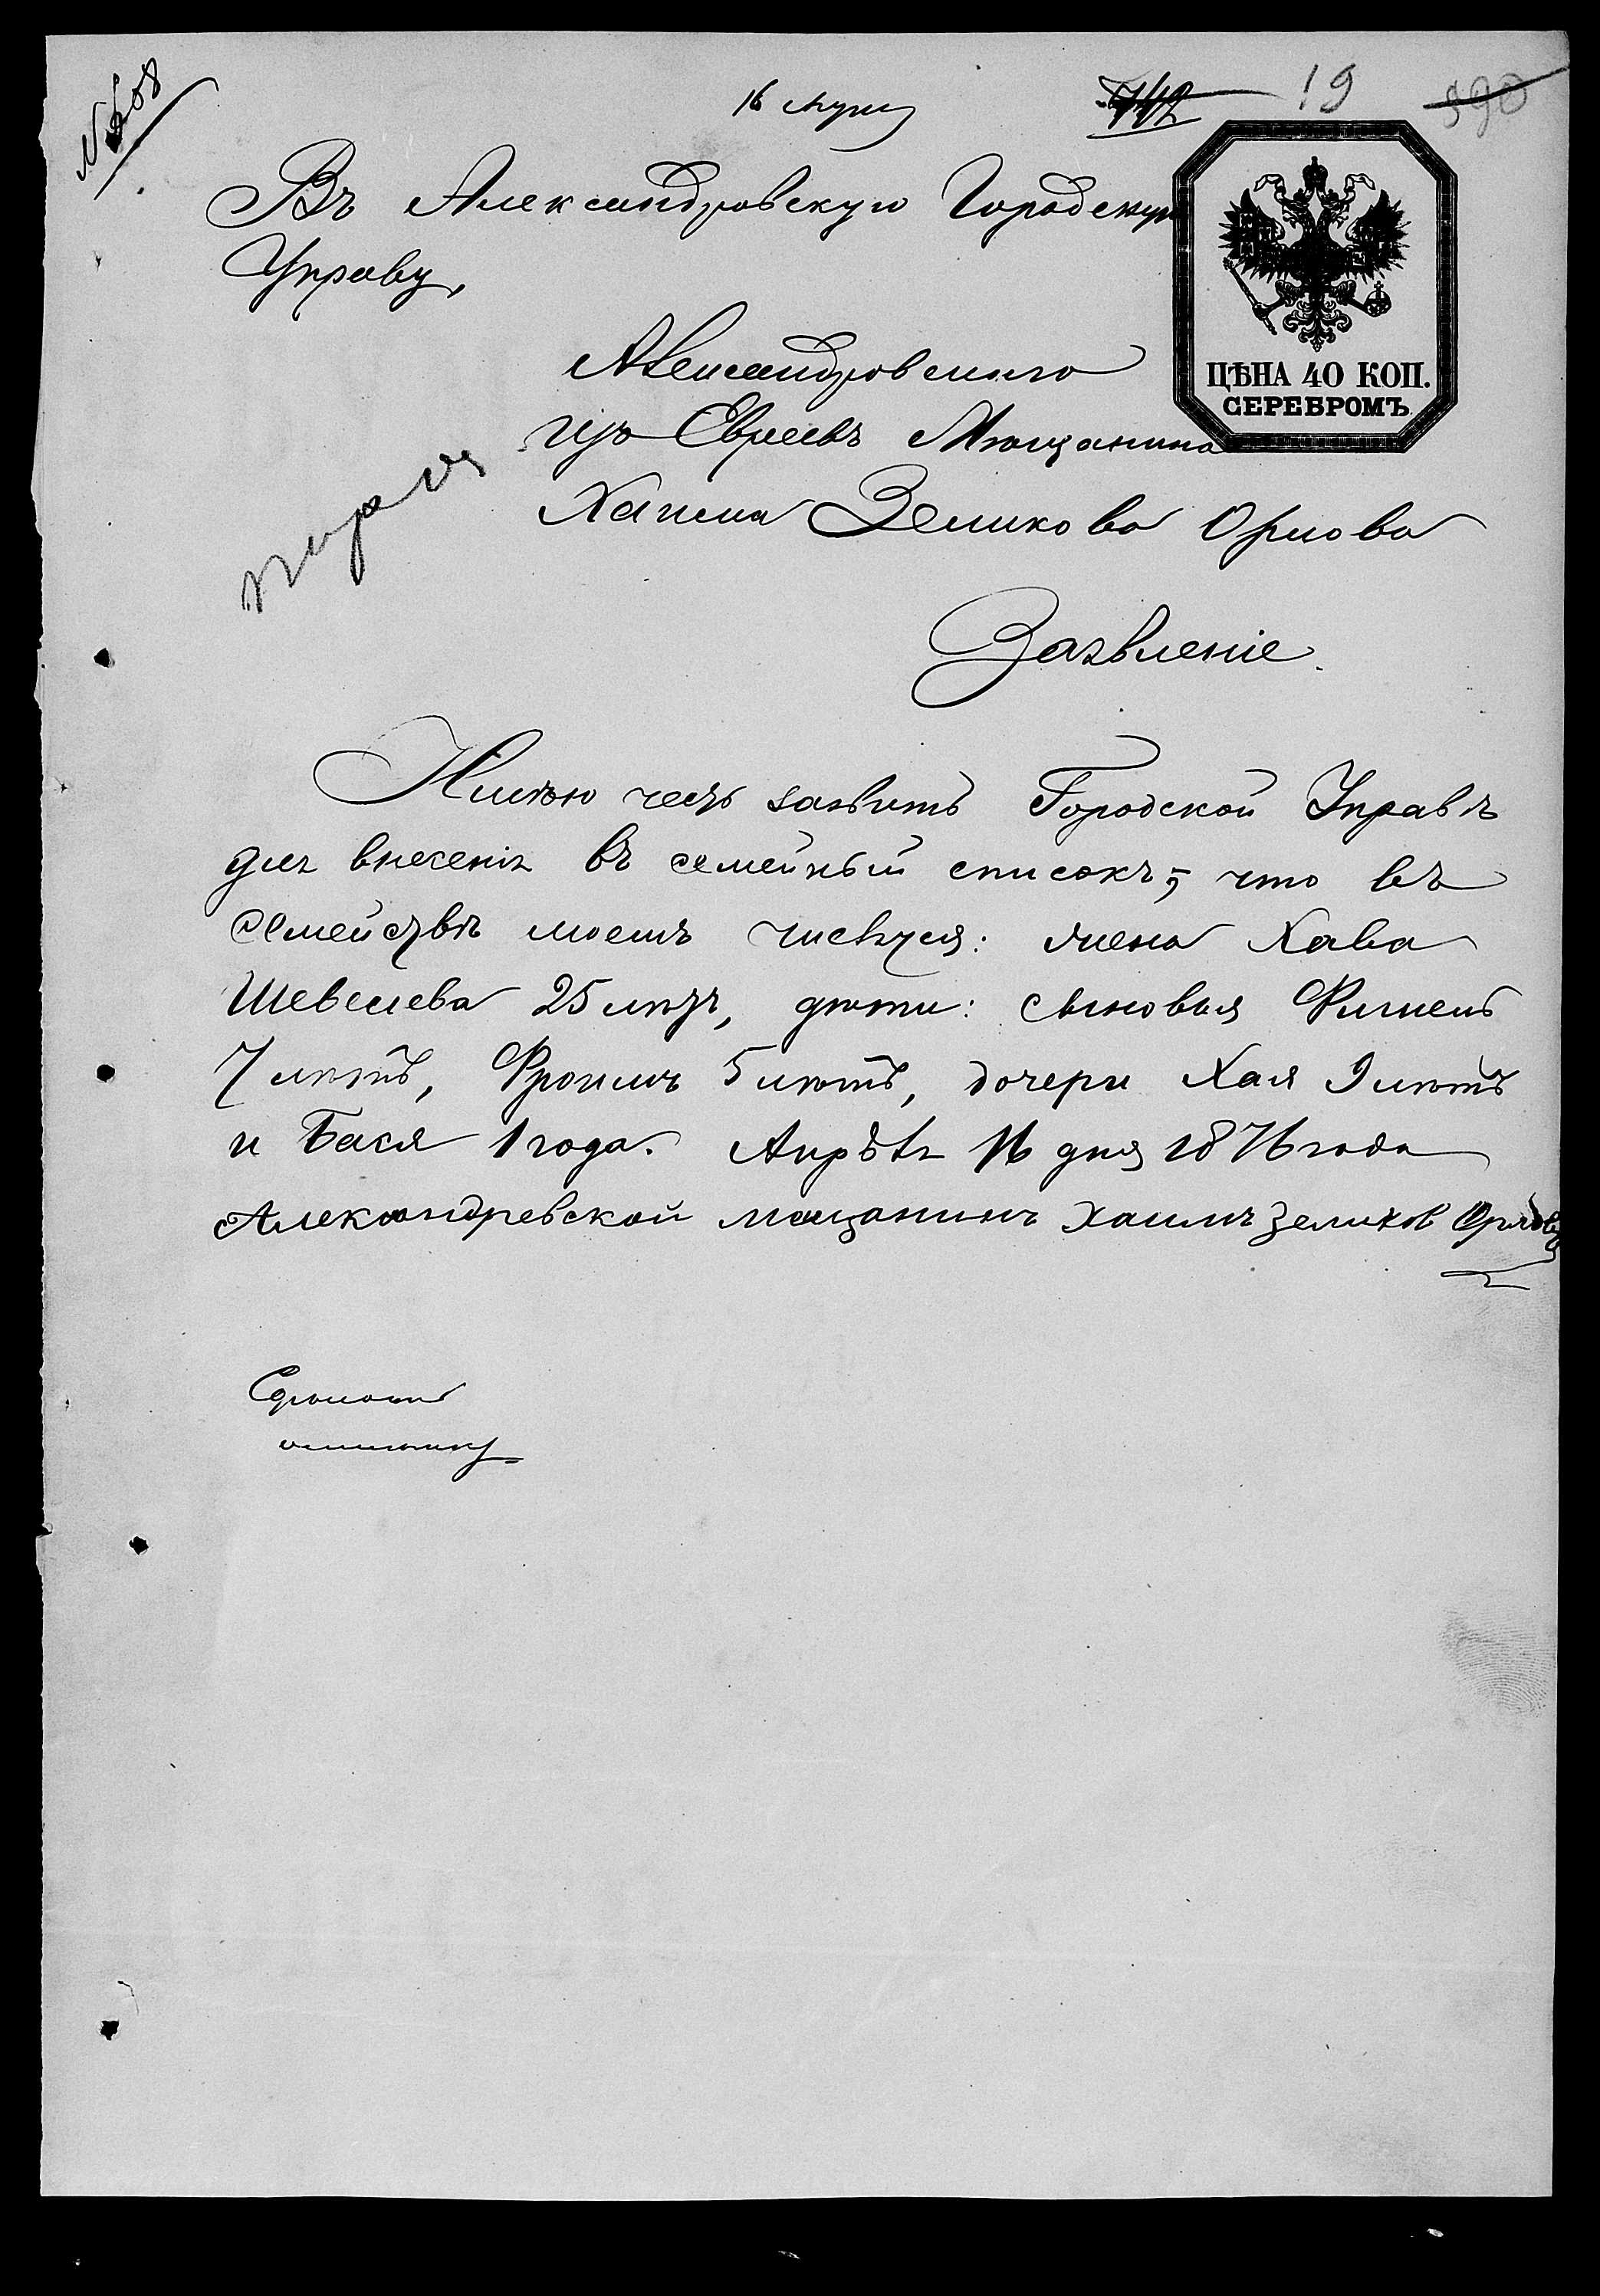 16 Апр
19
Въ Александровскую Городскую
Управу,
ЦѢНА 40 КОП.
СЕРЕБРОМЪ
Александровскаго
изъ Евреевъ Мѣщанина
Хаима Зеликова Орлова
Заявленіе.
Имѣю честь заявить Городской Управѣ
для внесенія въ семейный списокъ, что въ
семействѣ моемъ числятся: жена Хава
Шевелева 25 лѣтъ, дѣти: сыновья Фишель
7 лѣтъ, Фроимъ 5 лѣтъ, дочери Хая 9 лѣтъ
и Бася 1 года. Апрѣля 16 дня 1876 года
Александревской мещанинъ Хаимъ Зеликов Орловъ